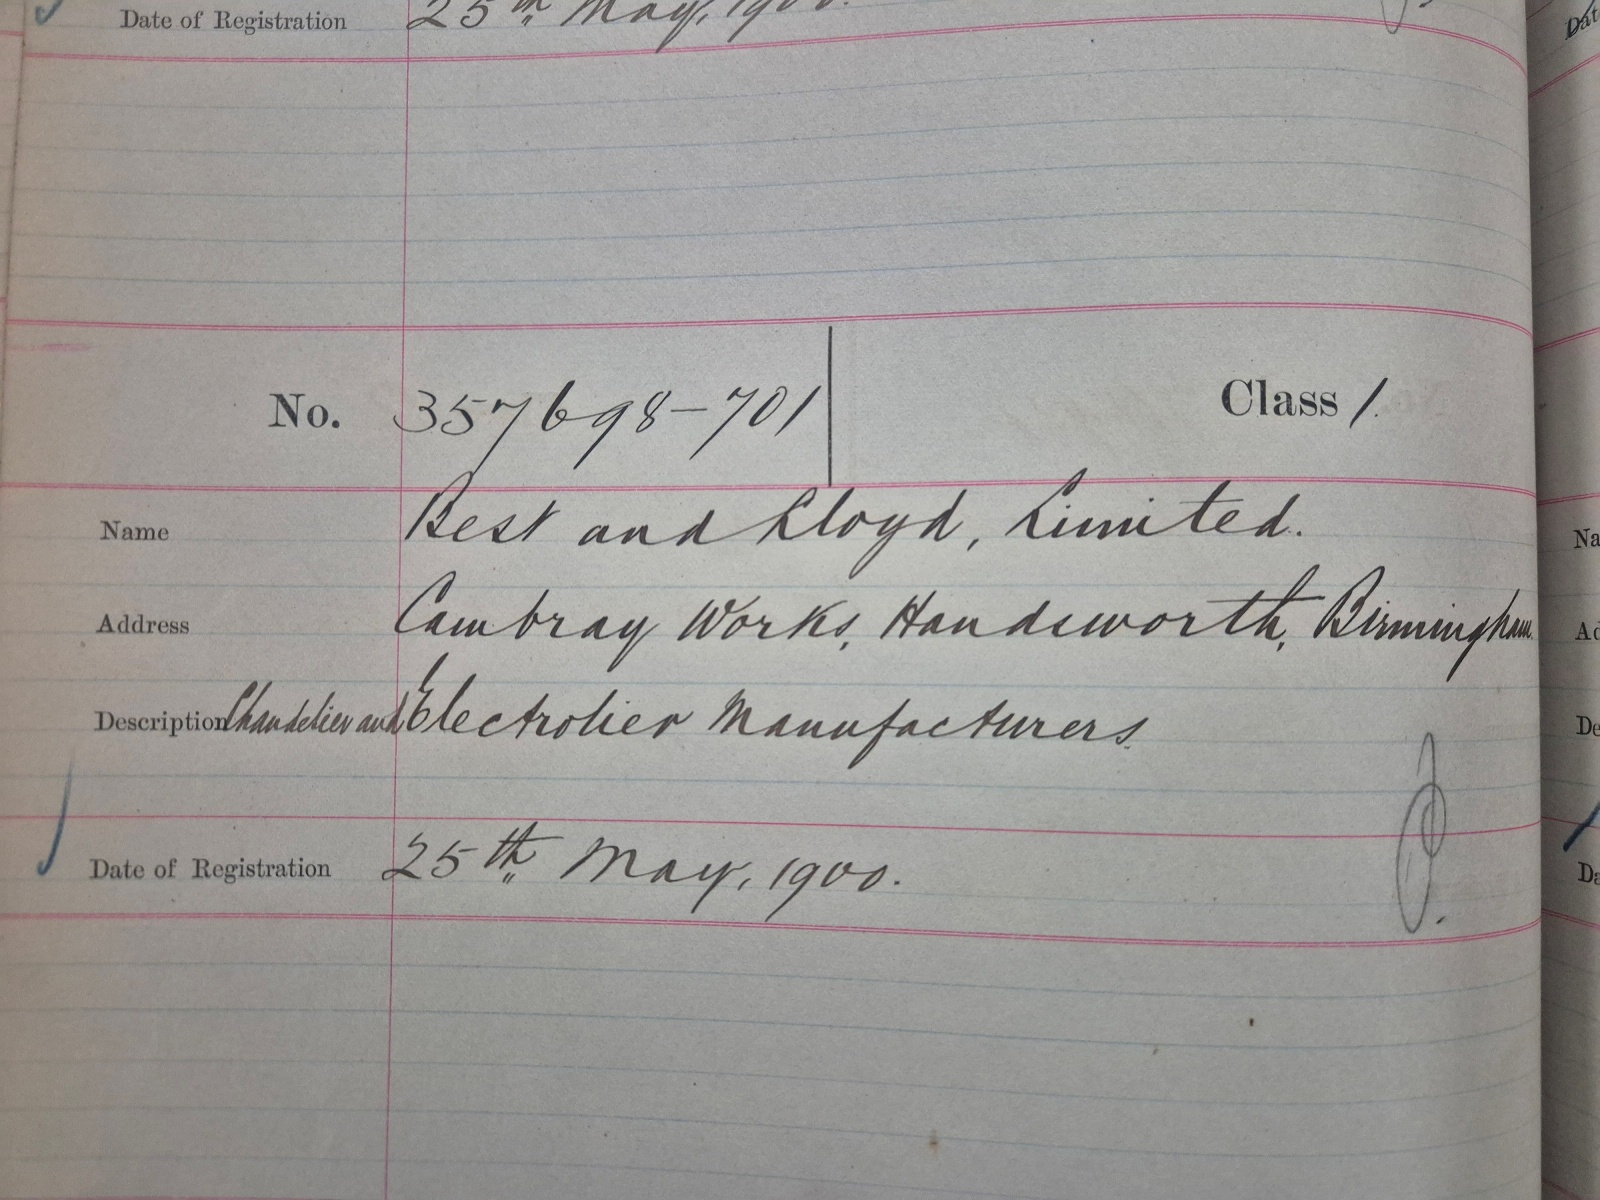 Date of Registration 25th May, 1900.
No. 357698-701 Class 1.
Name Best and Lloyd, Limited.
Address Cambray Works, Handsworth, Birmingham.
Description Chandelier and Electrolier Manufacturers.
Date of Registration 25th May, 1900.
Na
Ad
De
Da